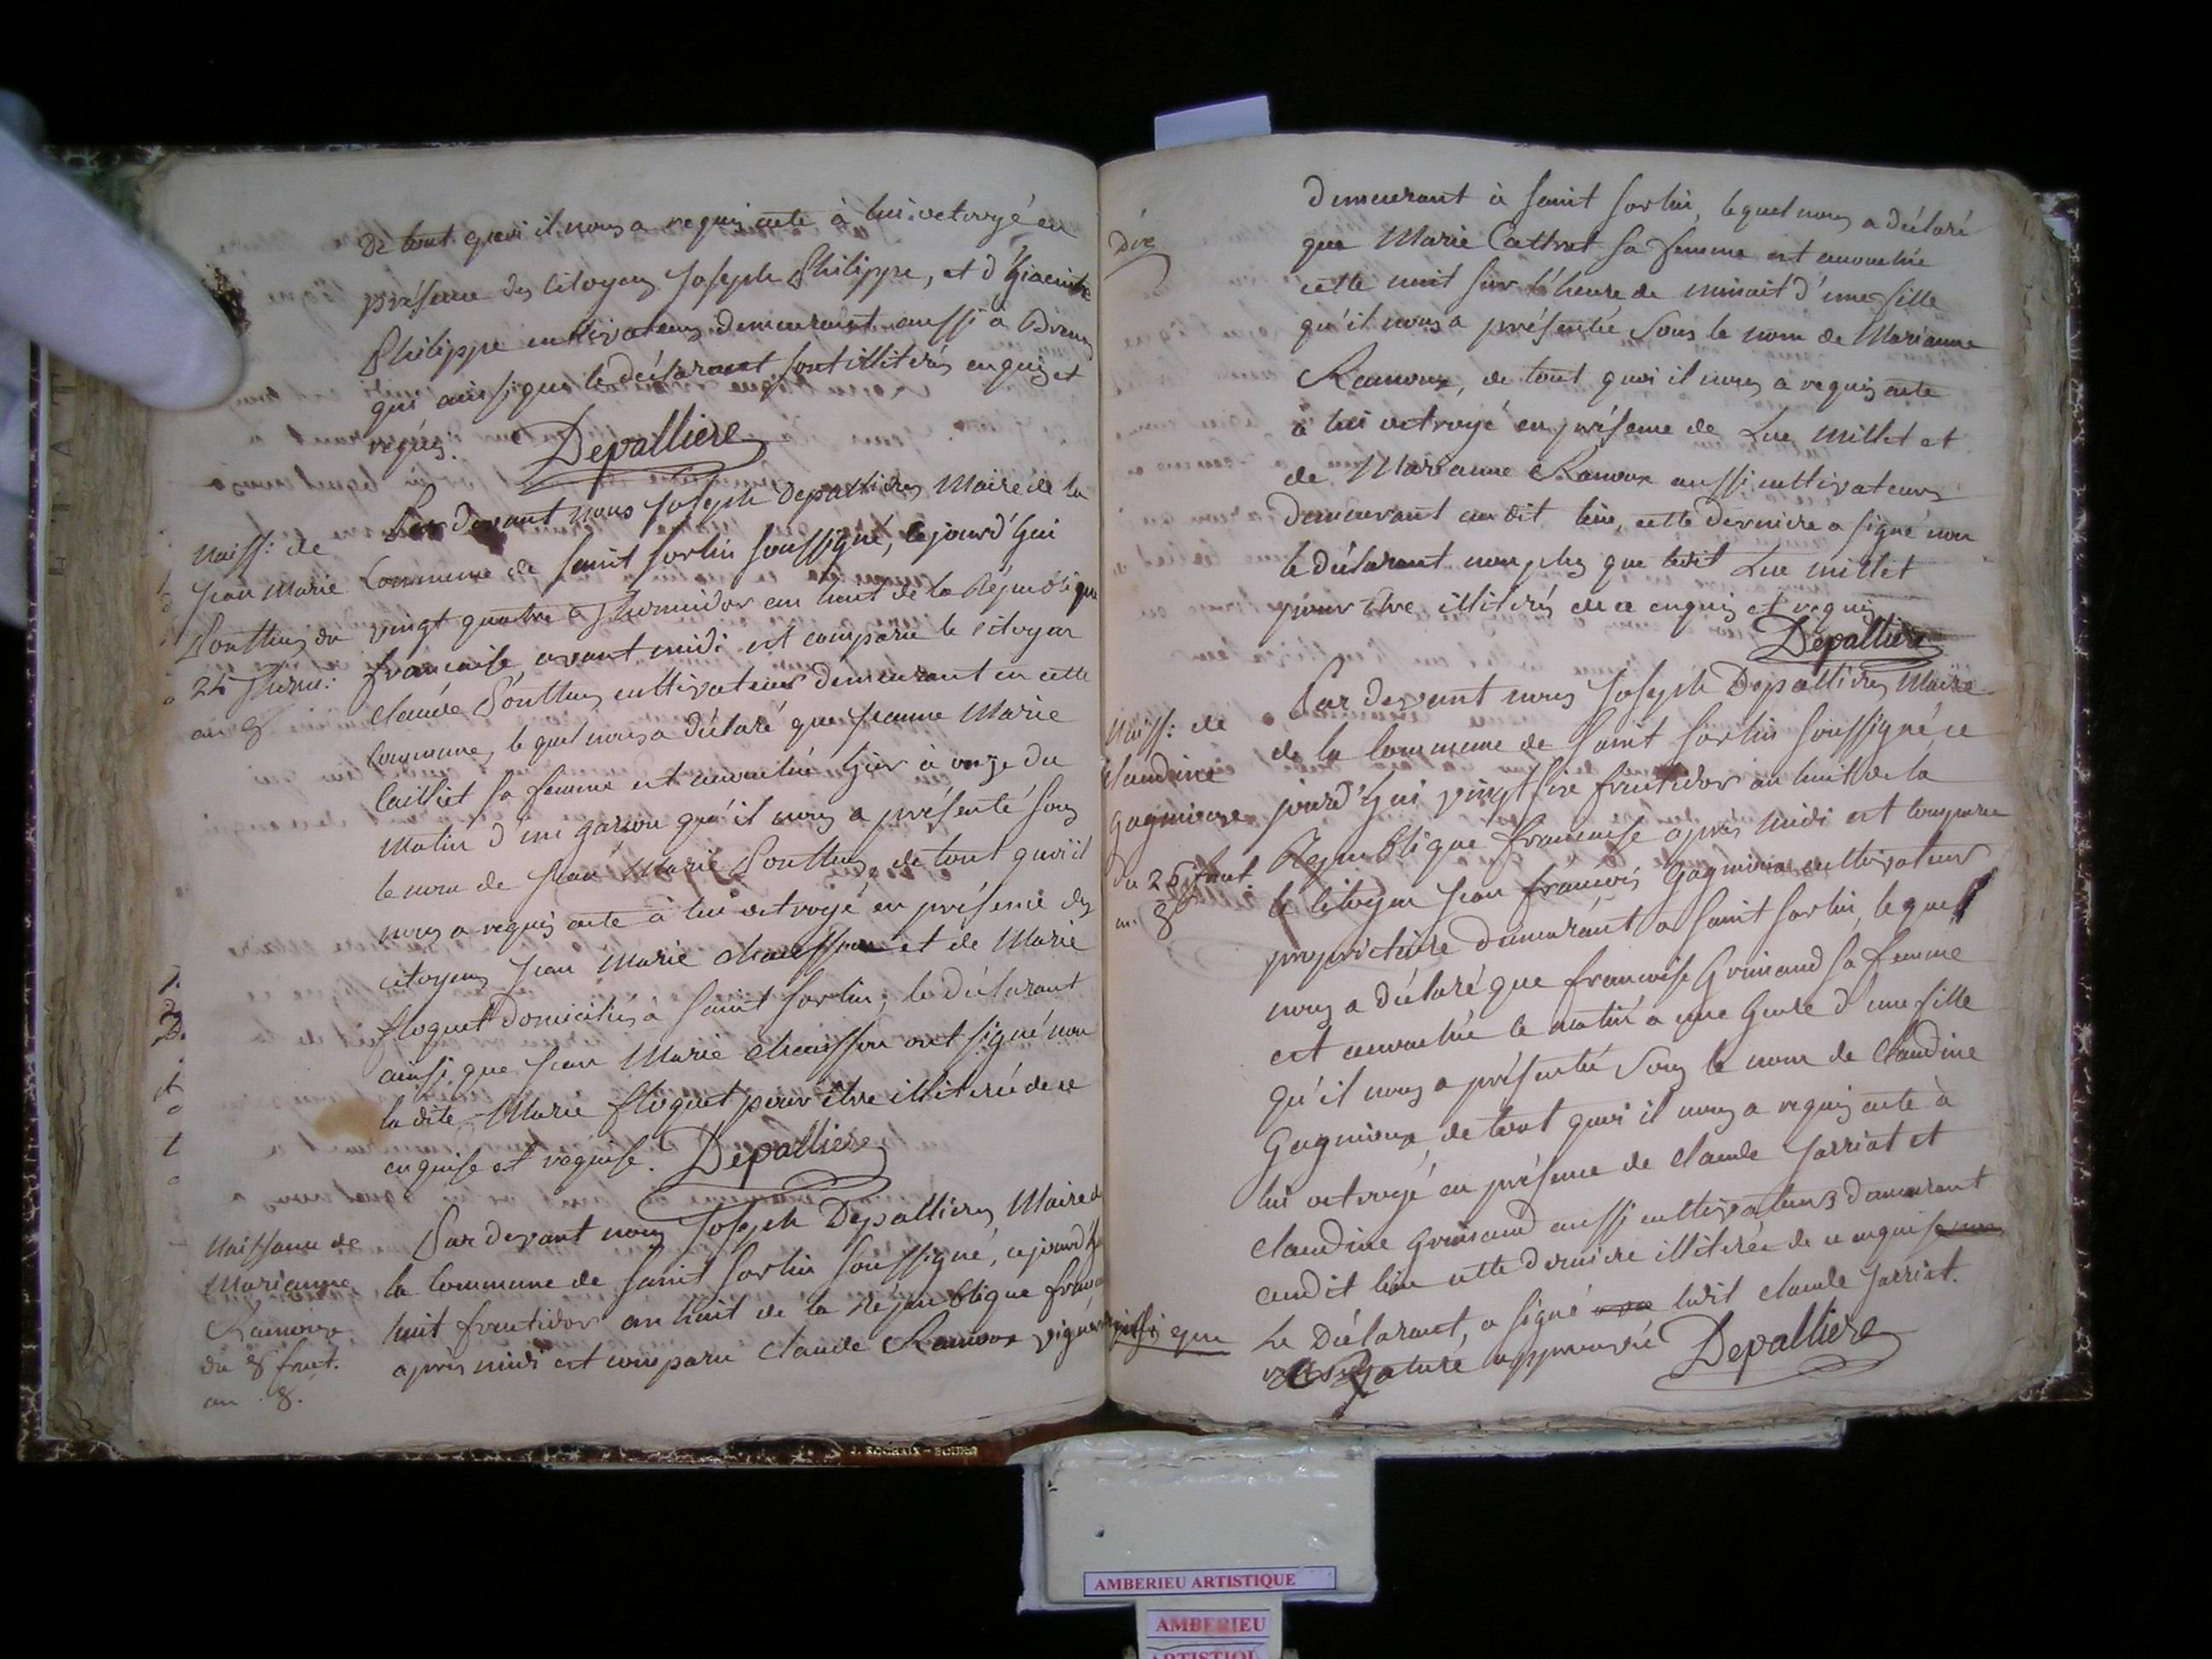 De tout quoi il nous a requis acte à lui octroyé en
présence des citoyens Joseph Philippe, et d'hiacinthe
Philippe cultivateurs demeurant aussi à
qui ainsi que le déclarant sont illitérés enquis et
requis.
Depalliere
Naiss: de
Jean Marie
Ponthus du
24 Therm:
an 8
Par devant nous Joseph Depallieres Maire de la
Commune de Saint Sorlin soussigné, cejourd'hui
vingt quatre Thermidor an huit de la République
francaise, avant midi est comparu le citoyen
claude Ponthus cultivateur demeurant en cette
Commune, lequel nous a déclaré que jeanne Marie
Cailliet sa femme est accouchée hier à onze du
Matin d'un garcon qu'il nous a présenté sous
le nom de Jean Marie Ponthus, de tout quoi il
nous a requis acte à lui octroyé en présence des
citoyens Jean Marie chausson et de Marie
floquet domiciliés à Saint Sorlin; le déclarant
ainsi que Jean Marie chaisson ont signé non
la dite Marie floquet pour être illiterée de ce
enquise et requise. Depalliere
Naissance de
Marianne
Ramoux
du 8 fruct.
an 8.
Par devant nous Joseph Depallieres Maire de
la Commune de Saint Sorlin soussigné, cejourd'hui
huit fructidor an huit de la République franca
après midi est comparu claude Ramoux vigneron
dix
demeurant à Saint Sorlin, lequel nous a déclaré
que Marie Cattret sa femme est accouchée
cette nuit sur l'heure de minuit d'une fille
qu'il nous a présentée sous le nom de Marianne
Ramoux, de tout quoi il nous a requis acte
à lui octroyé en présence de Luc Millet et
de Marianne Ramoux aussi cultivateurs
demeurant au dit lieu, cette derniere a signé non
le déclarant non plus que ledit Luc millet
pour être illitérés de ce enquis et requis
Depalliere
Naiss: de
claudine
Gagnieux
du 26 fruct.
an 8
Par devant nous Joseph Depallieres Maire
de la Commune de Saint Sorlin soussigné, ce
jourd'hui vingt six fructidor an huit de la
République francaise après midi est comparu
le Citoyen Jean francois Gagnieux cultivateur
propriétaire demeurant a Saint Sorlin, lequel
nous a déclaré que francoise Grimand sa femme
est accouchée le matin a une heure d'une fille
qu'il nous a présentée sous le nom de Claudine
Gagnieux, de tout quoi il nous a requis acte à
lui octroyé en présence de claude Jarriat et
claudine Grimand aussi cultivateurs demeurant
audit lieu cette derniere illitérée de ce enquise
ainsi que
Le Déclarant, a signé ledit claude Jarriat.
rature approuvée Depalliere
J. ROCHAIX - BOURG
AMBERIEU ARTISTIQUE
AMBERIEU
ARTISTIQUE